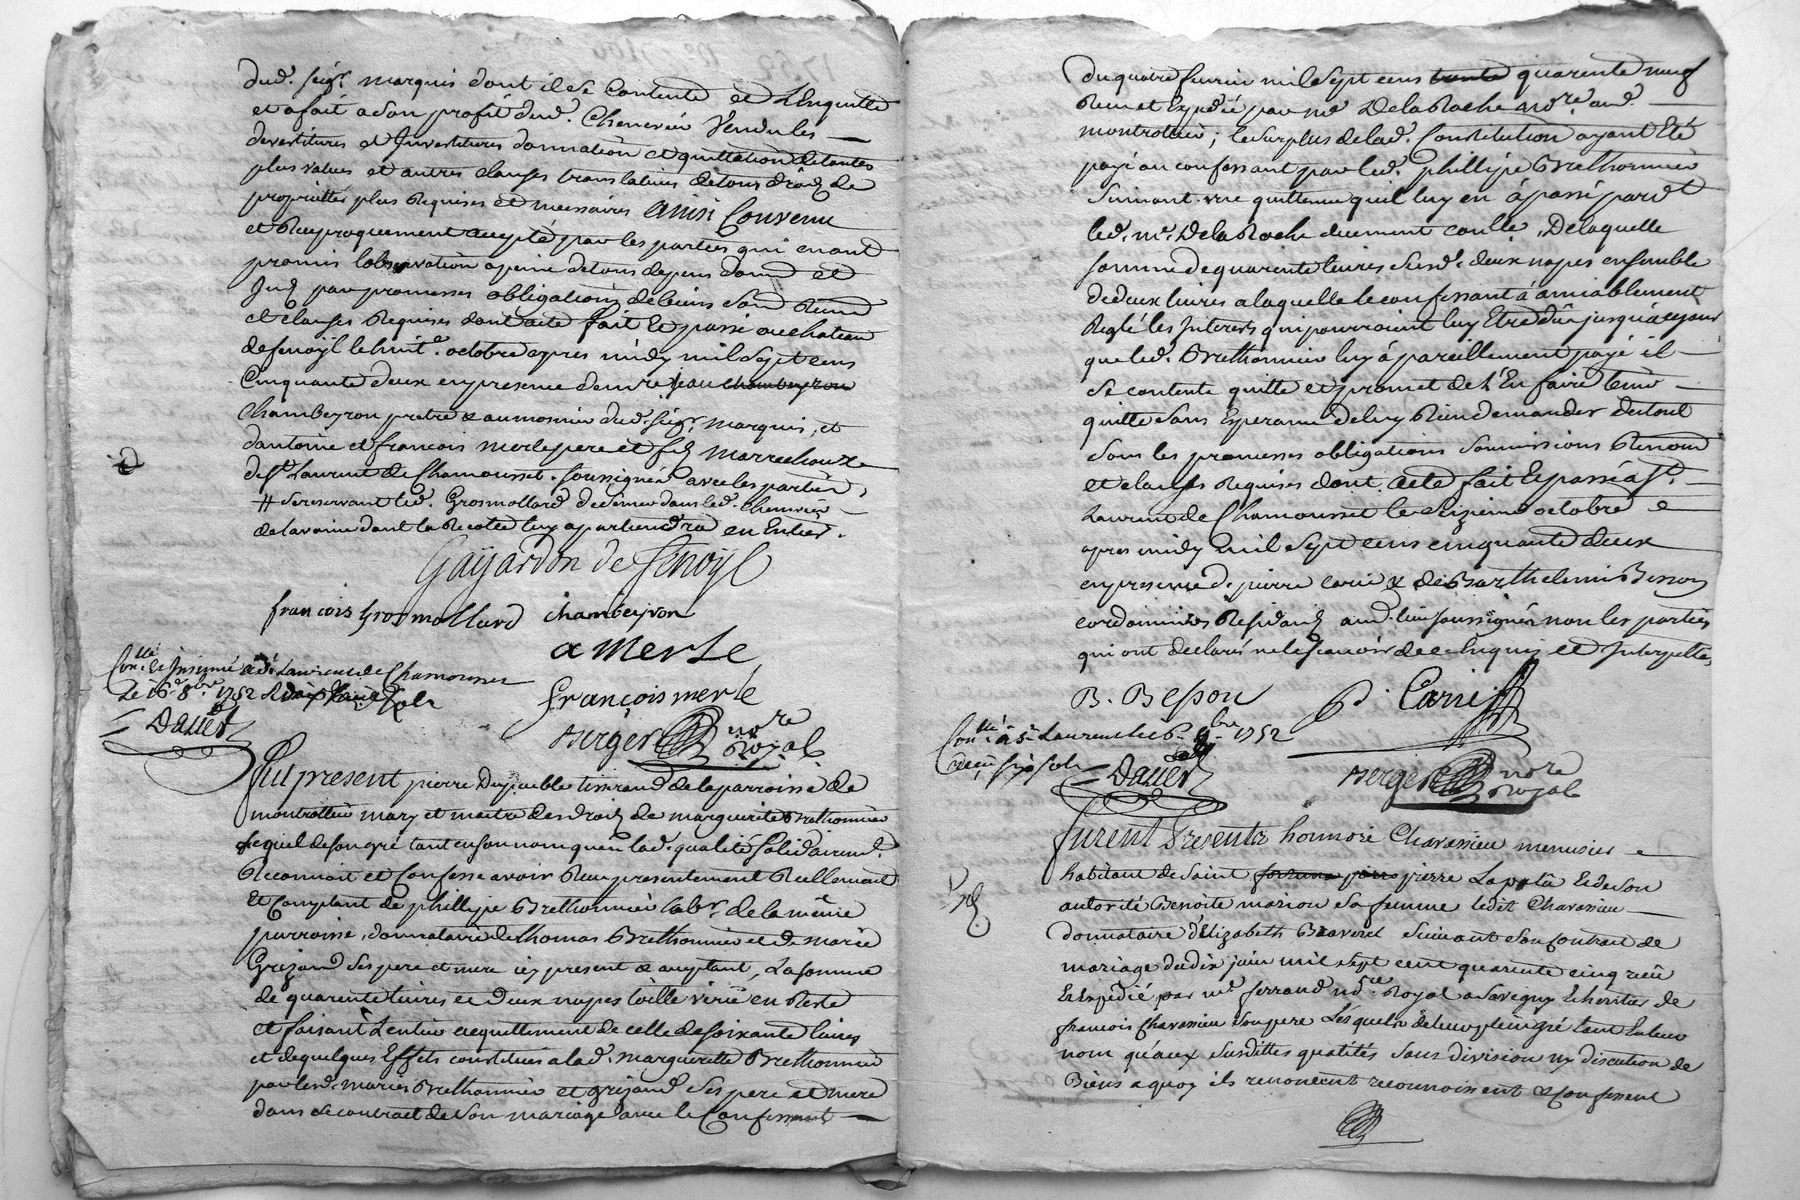 dud. seigr. marquis dont il se contente et l'en quitte
et a fait a son profit dud. Chenevier Vendu les
devestitures et Investitures donnation et quittation de toutes
plus values et autres clauses translatives de tous droits de
proprietter plus Requises et necessaires ainsi Convenu
et Reciproquement accepté par les parties qui en ont
promis l'observation a peine de tous depens domd et
par promesses obligations de biens Soumd Renond
et clauses Requises dont acte fait et passé au chateau
de Senoÿl le huite. octobre apres midy mil Sept cens
Cinquante deux en presence de mre jean chambeyron
Chambeyron pretre & aumosnier dud. seigr. marquis, et
d'antoine et francois merle pere et fils marrechaux
de St. Laurent de Chamousset. soussignés avec les parties,
# se reservant led. Grosmollard de semer dans led. Chenevier
de la voine dont la Recolte luy apartiendra en Entier.
Gaÿardon de Senoÿl
francois Grosmollard chambeyron
a merle
Conllé. et Insinué a St. Laurent de Chamousset
Le 16e. 8bre. 1752 Sols
françois merle
Dauer
Berger nore Royal
Fut present pierre Dupeuble tisserand de la parroisse de
montrottier mary et maitre des droits de marguerite Brethonnier
lequel de son gré tant en son nom qu'en lad. qualité solidairemt.
Reconnoit et Confesse avoir Reçu presentement Réellement
Et Comptant de phillype Brethonnier labr. de la même
parroisse, donnataire de thomas Brethonnier et de marie
Grizard ses pere et mere icy present & acceptant, La somme
de quarente livres et deux napes toille en Reste
et faisant L'entier acquittement de celle de soixante livres
et de quelques Effets constitués a lad. marguerite Brethonnier
par lesd. mariés Brethonnier et Grizard ses pere et mere
dans le contract de son mariage avec le Confessant
Du quatre fevrier mil sept cens trente quarente neuf
Reçu et Expedié par me. De la Roche nore. aud.
montrottier; le surplus de lad. Constitution ayant Eté
payé au confessant par led. phillype Brethonnier
Suivant une quittance qu'il luy en à passé pardt
led. me. De la Roche duement conllée, De laquelle
somme de quarente livres Susd. deux napes ensemble
de deux livres a laquelle le confessant à amiablement
Reglé les Interets qui pourroient luy Etre dûs jusqu'a ce jour
que led. Brethonnier luy à pareillement payé il
se contente quitte et promet de l'En faire tenir
quitte sans Esperance de luy Rien demander du tout
sous les promesses obligations soumissions Renond
et clauses Requises dont acte fait Et passé a St.
Laurent de Chamousset le seizieme octobre
apres midy mil sept cens cinquante deux
en presence de pierre carie & de Barthelemi Besson
cordonniers Residants aud. lieu soussignés non les parties
qui ont declaré ne le sçavoir de ce Enquis et Interpellés
B. Besson P. Carie
Conllé. à St. Laurent le 16e. 8bre. 1752
Reçu six sols
Dauer Berger nore Royal
Furent Presents honnoré Chavassieu menusier
habitant de Saint pierre Lapalû Et de son
autorité Benoite marion sa femme ledit Chavassieu
donnataire d'Elizabeth Braveret suivant son contract de
mariage du dix juin mil sept cent quarente cinq reçû
Et Expedié par me. ferrand nore Royal a Savigny Et heritier de
françois Chavassieu son pere Lesquels de leur plein gré tant En leur
nom qu'aux susdittes qualités sans division ny discution de
Biens a quoy ils renoncent reconnoissent & Confessent